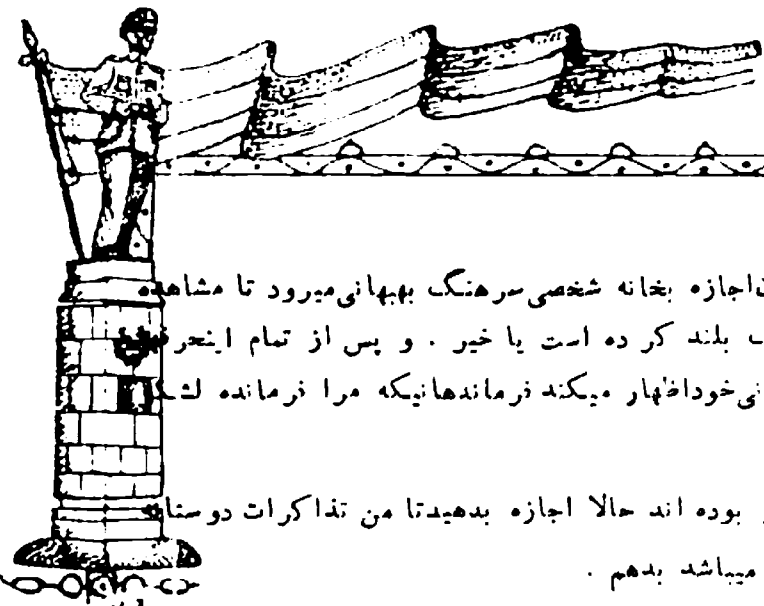 اجازه بخانه شخصی سرهنگ بهبهانی میرود تا مشاهده
بلند کرده است یا خیر . و پس از تمام
خود اظهار میکند فرماندهانیکه مرا فرمانده
بوده اند حالا اجازه بدهید تا من تذاکرات
میباشد بدهم .